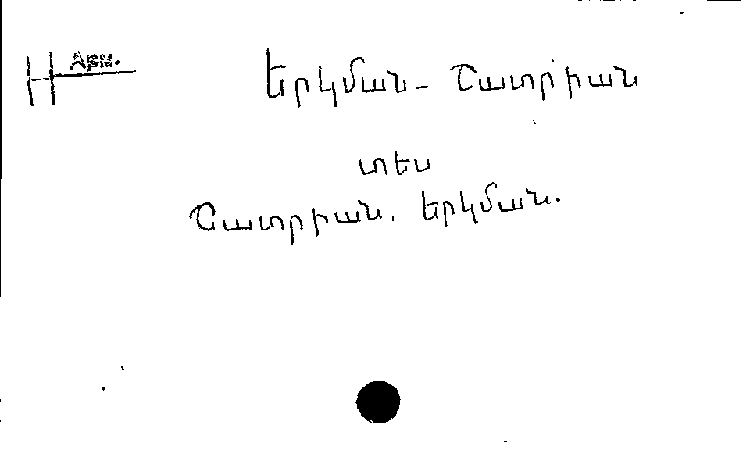 Արտ.
Երկման - Շատրիան
տես
Շատրիան, Երկման.